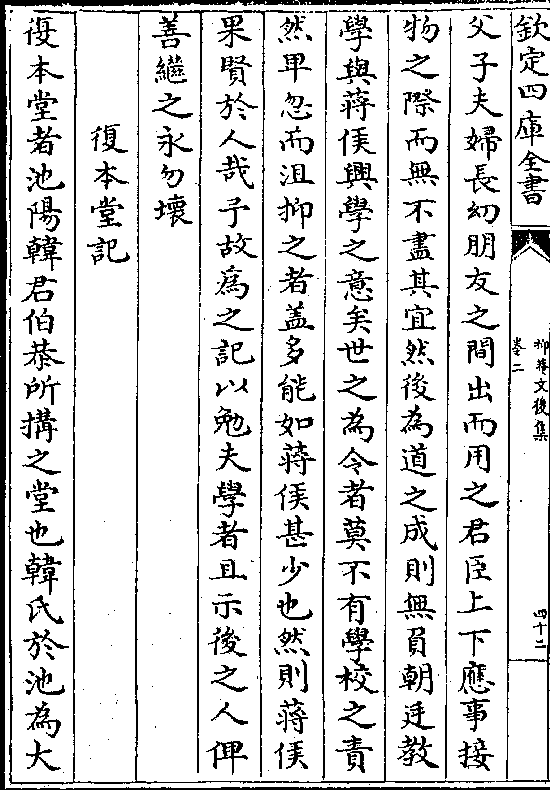 欽定四庫全書
抑菴文後集
卷二
四十二
父子夫婦長幼朋友之間出而用之君臣上下應事接
物之際而無不盡其宜然後為道之成則無負朝廷教
學與蔣侯興學之意矣世之為令者莫不有學校之責
然卑忽而沮抑之者盖多能如蔣侯甚少也然則蔣侯
果賢於人哉予故爲之記以勉夫學者且示後之人俾
善繼之永勿壞
復本堂記
復本堂者池陽韓君伯恭所搆之堂也韓氏於池為大